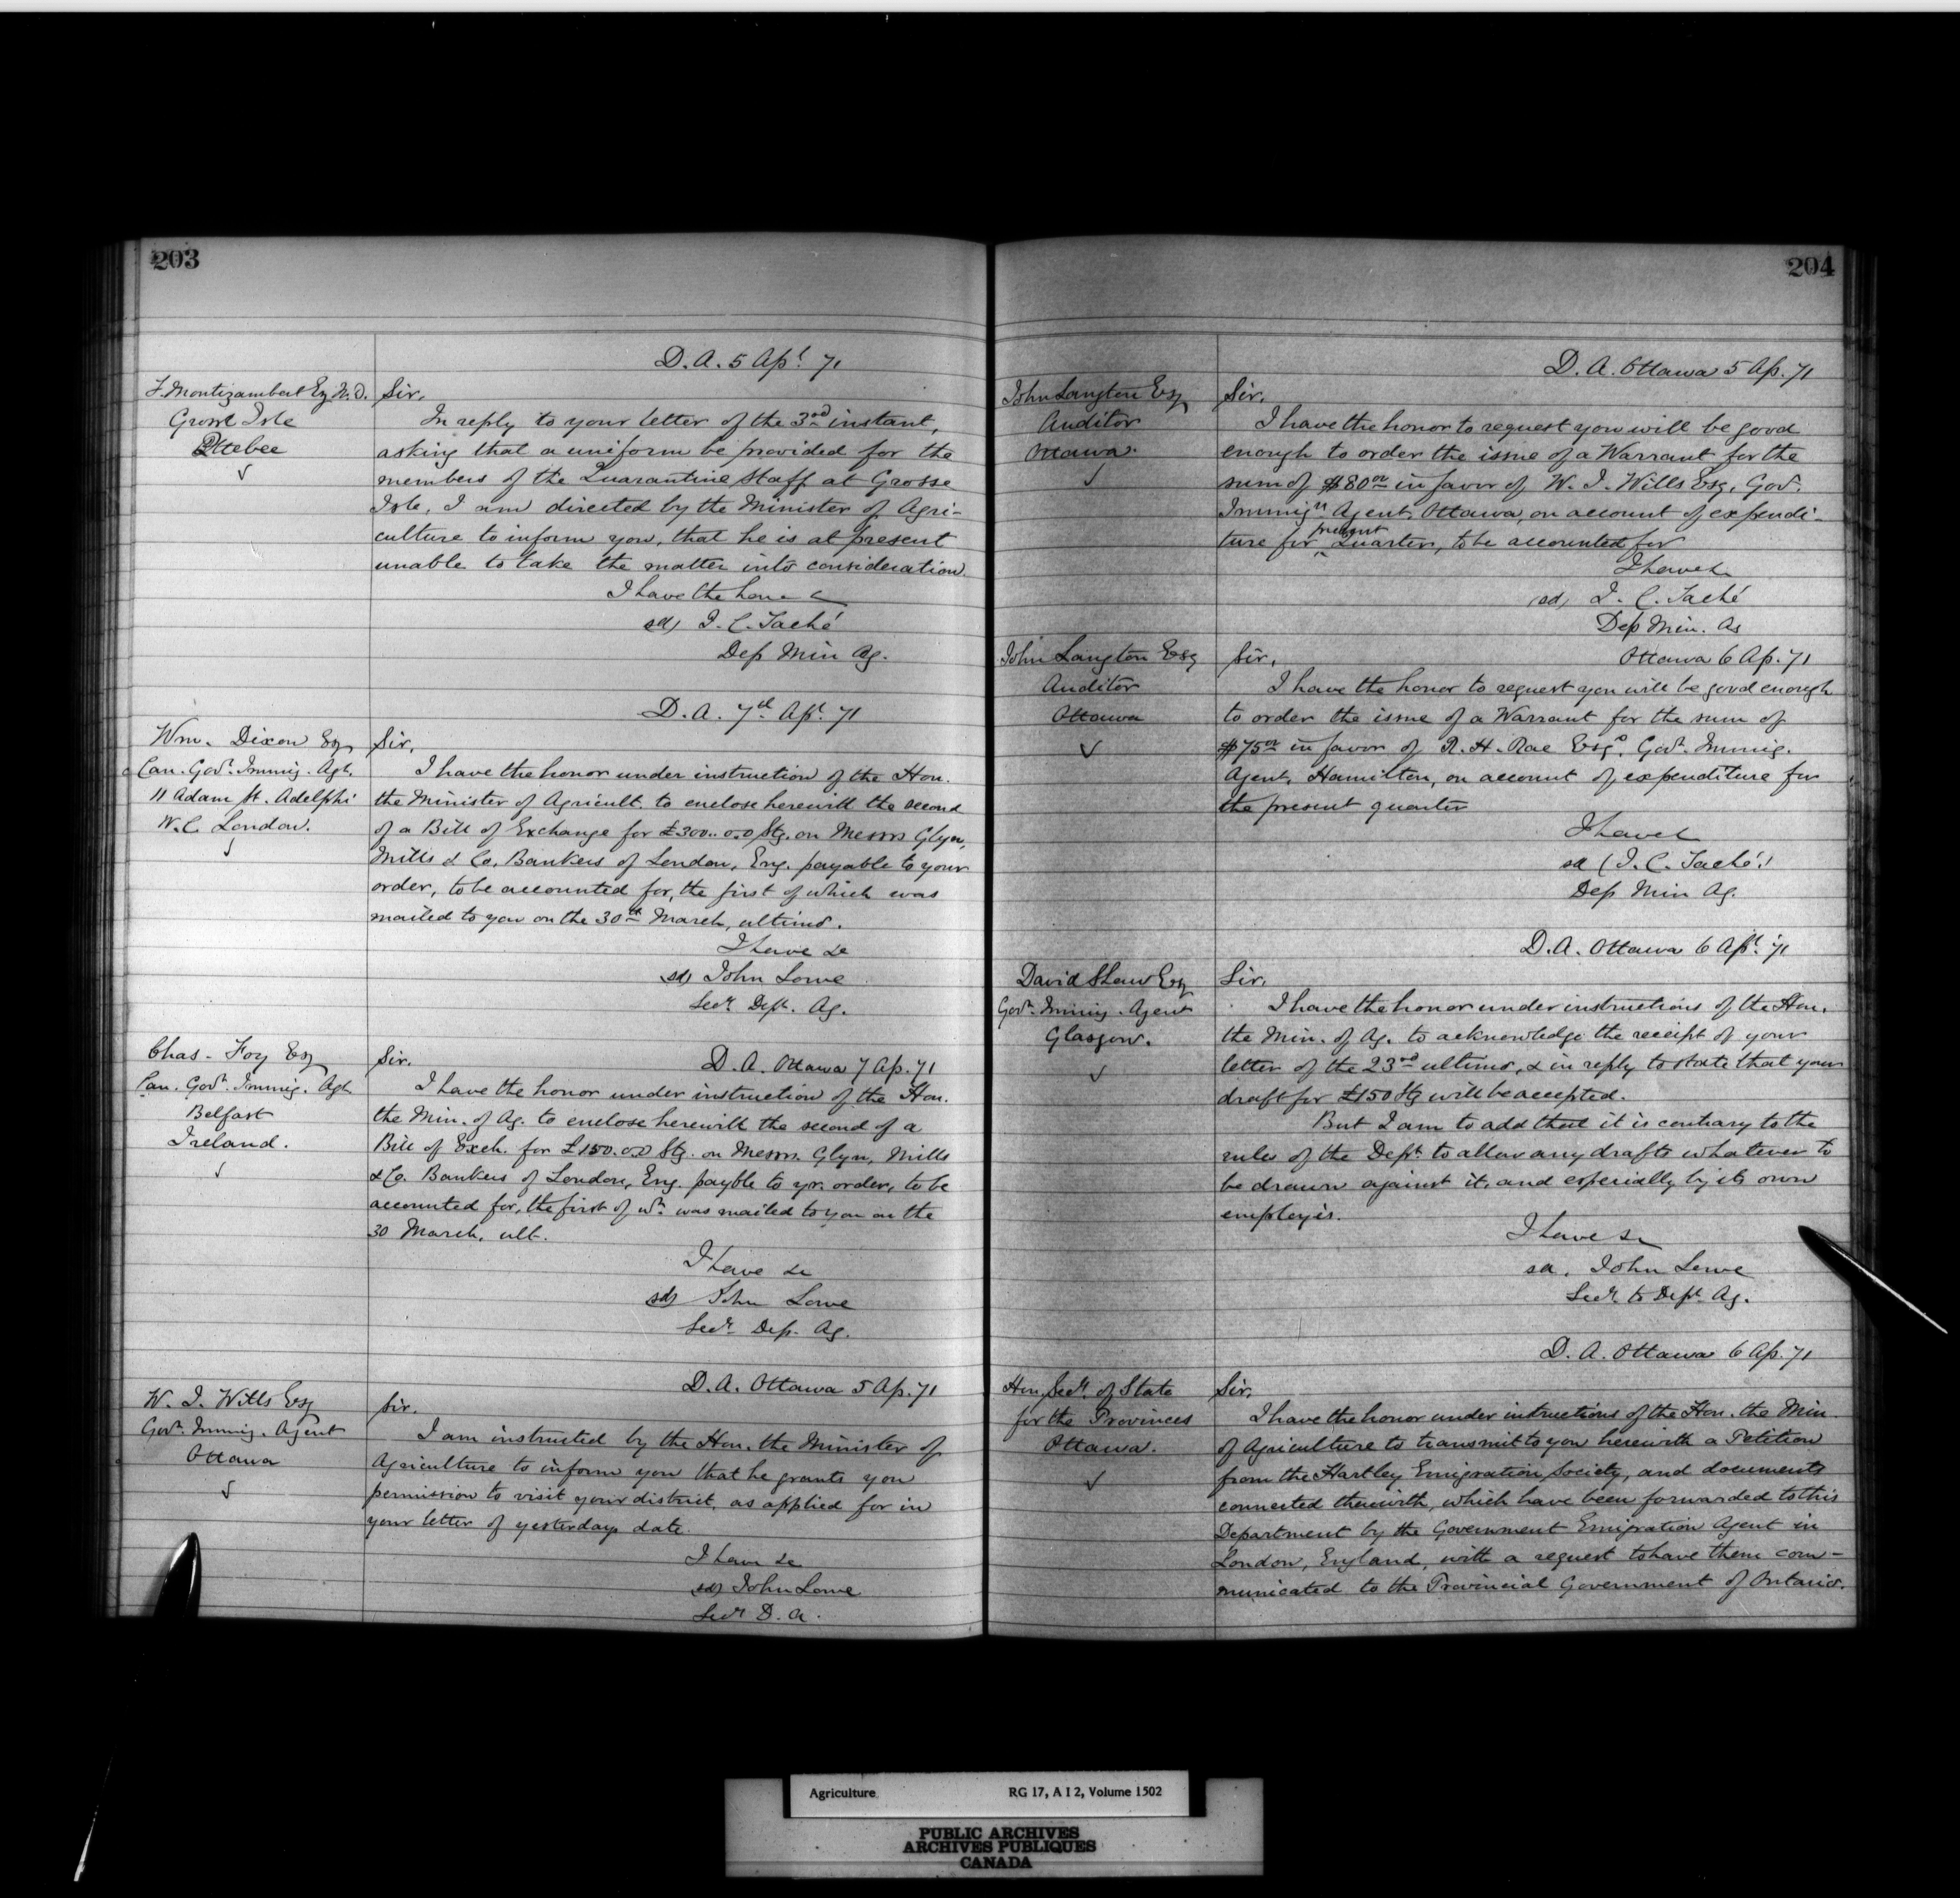 203
D. A. 5 Apl. 71
F. Montizambert Esq M.D.
Grosse Isle
Quebec
Sir,
In reply to your letter of the 3rd instant,
asking that a uniform be provided for the
members of the Quarantine Staff at Grosse
Isle, I am directed by the Minister of Agri-
culture to inform you, that he is at present
unable to take the matter into consideration.
I have the hon &c
sd) J. C. Taché
Dep Min Ag.
D. A. 7th Apl. 71
Wm. Dixon Esq
Can. Govt. Immig. Agt.
11 Adam St. Adelphi
W.C. London.
Sir,
I have the honor under instruction of the Hon.
the Minister of Agricult. to enclose herewith the second
of a Bill of Exchange for £300..0.0 Stg. on Messrs Glyn,
Mills & Co. Bankers of London, Eng. payable to your
order, to be accounted for, the first of which was
mailed to you on the 30th March, ultimo.
I have &c
sd) John Lowe
Secr. Dept. Ag.
Chas. Foy Esq
Can. Govt. Immig. Agt.
Belfast
Ireland.
D. A. Ottawa 7 Ap. 71
Sir.
I have the honor under instruction of the Hon.
the Min. of Ag. to enclose herewith the second of a
Bill of Exch. for £150.0.0 Stg. on Messrs. Glyn, Mills
& Co. Bankers of London, Eng. payble to yr. order, to be
accounted for, the first of wh. was mailed to you on the
30 March, ult.
I have &c
sd) John Lowe
Secr. Dep. Ag.
D. A. Ottawa 5 Ap. 71
W. J. Wills Esq
Govt. Immig. Agent
Ottawa
Sir.
I am instructed by the Hon. the Minister of
Agriculture to inform you that he grants you
permission to visit your district, as applied for in
your letter of yesterdays date.
I have &c
sd) John Lowe
Secr D. A.
204
D. A. Ottawa 5 Ap. 71
John Langton Esq
Auditor
Ottawa.
Sir.
I have the honor to request you will be good
enough to order the issue of a Warrant for the
sum of $80 00 in favor of W. J. Wills Esq, Gov.
Immign Agent, Ottawa, on account of expendi-
ture for present Quarter, to be accounted for
I have &
(sd) J. C. Taché
Dep Min. Ag
Ottawa 6 Ap. 71
John Langton Esq
Auditor
Ottawa
Sir,
I have the honor to request you will be good enough
to order the issue of a Warrant for the sum of
$75 00 in favor of R. H. Rae Esqe. Govt. Immig.
Agent, Hamilton, on account of expenditure for
the present quarter
I have &
sd (J. C. Taché)
Dep Min Ag.
D. A. Ottawa 6 Apl. 71
David Shaw Esq
Govt. Immig. Agent
Glasgow.
Sir,
I have the honor under instructions of the Hon.
the Min. of Ag. to acknowledge the receipt of your
letter of the 23rd ultimo, & in reply to state that your
draft for £150 Stg will be accepted.
But I am to add that it is contrary to the
rules of the Dept. to allow any drafts whatever to
be drawn against it, and especially by its own
employés.
I have &c
sd. John Lowe
Secr. to Dept. Ag.
D. A. Ottawa 6 Ap. 71
Hon. Secr. of State
for the Provinces
Ottawa.
Sir,
I have the honor under instructions of the Hon. the Min.
of Agriculture to transmit to you herewith a Petition
from the Hartley Emigration Society, and documents
connected therewith, which have been forwarded to this
Department by the Government Emigration Agent in
London, England, with a request to have them com-
municated to the Provincial Government of Ontario.
Agriculture RG 17, A I 2, Volume 1502
PUBLIC ARCHIVES
ARCHIVES PUBLIQUES
CANADA